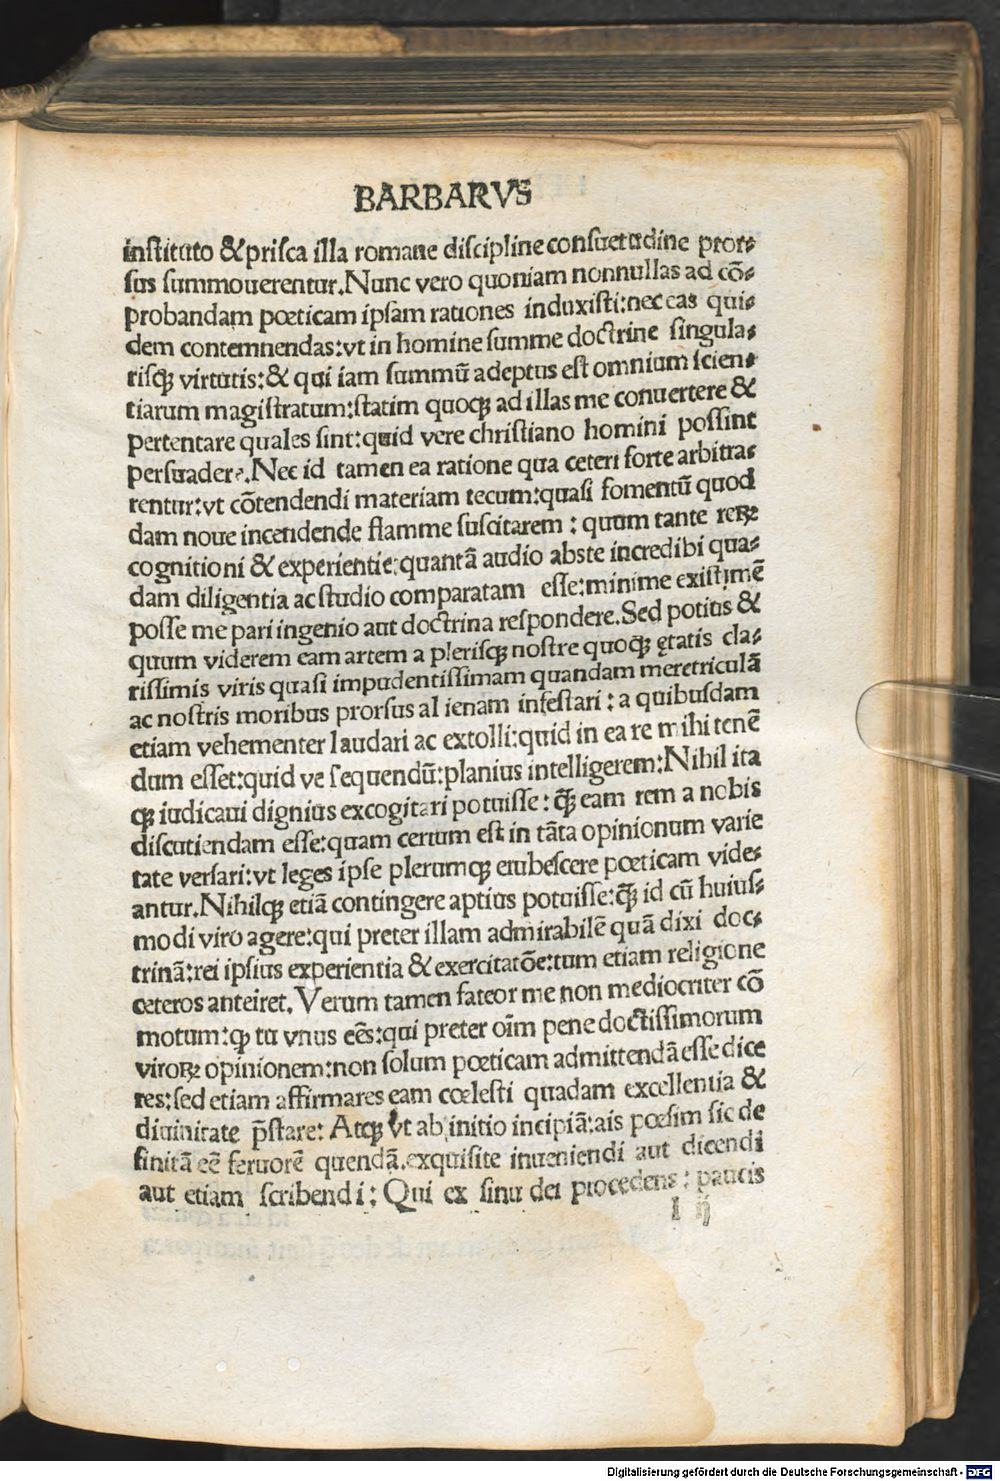 BARBARVS
instituto & prisca illa romane discipline consuetudine pror⸗
sus summouerentur. Nunc vero quoniam nonnullas ad cō⸗
probandam pœticam ipsam rationes induxisti: nec eas qui⸗
dem contemnendas: vt in homine summe doctrine singula⸗
risqꝫ virtutis: & qui iam summū adeptus est omnium scien⸗
tiarum magistratum: statim quoqꝫ ad illas me conuertere &
pertentare quales sint: quid vere christiano homini possint
persuadere. Nec id tamen ea ratione qua ceteri forte arbitra⸗
rentur: vt cōtendendi materiam tecum: quasi fomentū quod
dam noue incendende flamme suscitarem: quum tante reꝝ
cognitioni & experientie: quantā audio abste incredibi qua⸗
dam diligentia ac studio comparatam esse: minime existimē
posse me pari ingenio aut doctrina respondere. Sed potius &
quum viderem eam artem a plerisqꝫ nostre quoqꝫ ętatis cla⸗
rissimis viris quasi impudentissimam quandam meretriculā
ac nostris moribus prorsus al ienam infestari: a quibusdam
etiam vehementer laudari ac extolli: quid in ea re mihi tenē
dum esset: quid ve sequendū: planius intelligerem: Nihil ita
qꝫ iudicaui dignius excogitari potuisse: qꝫ̄ eam rem a nobis
discutiendam esse: quam certum est in tāta opinionum varie
tate versari: vt leges ipse plerumqꝫ erubescere pœticam vide⸗
antur. Nihilqꝫ etiā contingere aptius potuisse: qꝫ̄ id cū huius⸗
modi viro agere: qui preter illam admirabilē quā dixi doc⸗
trinā: rei ipsius experientia & exercitatōe: tum etiam religione
ceteros anteiret. Verum tamen fateor me non mediocriter cō
motum: qꝫ tu vnus eēs: qui preter oīm pene doctissimorum
viroꝝ opinionem: non solum pœticam admittendā esse dice
res: sed etiam affirmares eam cœlesti quadam excellentia &
diuinitate p̄stare: Atqꝫ vt ab initio incipiā: ais pœsim sic de
finitā eē feruorē quendā. exquisite inueniendi aut dicendi
aut etiam scribendi: Qui ex sinu dei procedens: paucis
l ij
Digitalisierung gefördert durch die Deutsche Forschungsgemeinschaft - DFG